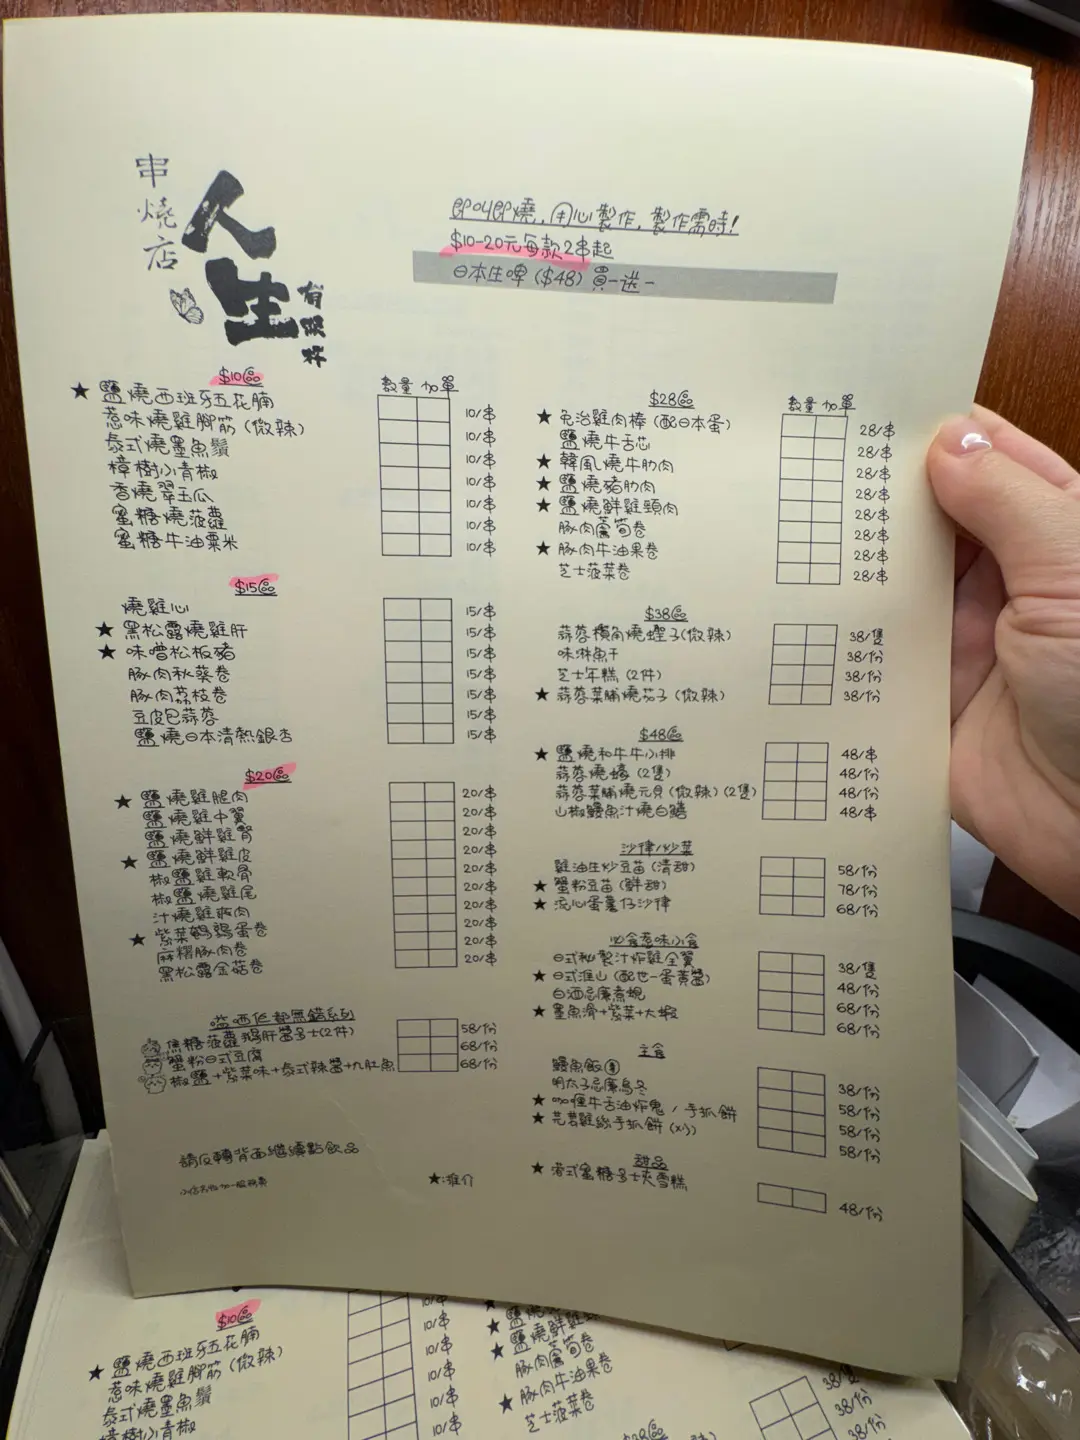 串燒店
人生
有限杯
即叫即燒，用心製作，製作需時！
$10-20元每款2串起
日本生啤($48)買一送一
$10區
數量 加單
★ 鹽燒西班牙五花腩 10/串
惹味燒雞腳筋(微辣) 10/串
泰式燒墨魚鬚 10/串
樟樹小青椒 10/串
香燒翠玉瓜 10/串
蜜糖燒菠蘿 10/串
蜜糖牛油粟米 10/串
$15區
燒雞心 15/串
★ 黑松露燒雞肝 15/串
★ 味噌松板豬 15/串
豚肉秋葵卷 15/串
豚肉荔枝卷 15/串
豆皮包蒜蓉 15/串
鹽燒日本清熱銀杏 15/串
$20區
★ 鹽燒雞腿肉 20/串
鹽燒雞中翼 20/串
鹽燒鮮雞腎 20/串
★ 鹽燒鮮雞皮 20/串
椒鹽雞軟骨 20/串
椒鹽燒雞尾 20/串
汁燒雞肉 20/串
★ 紫菜鵪鶉蛋卷 20/串
麻糬豚肉卷 20/串
黑松露金菇卷 20/串
嗌西佢都無錯系列
焦糖菠蘿鵝肝醬多士(2件) 58/份
蟹粉日式豆腐 68/份
椒鹽+紫菜味+泰式辣醬+九肚魚 68/份
請反轉背面繼續點飲品
★:推介
$28區
數量 加單
★ 免治雞肉棒(配日本蛋) 28/串
鹽燒牛舌芯 28/串
★ 韓風燒牛肋肉 28/串
★ 鹽燒豬肋肉 28/串
★ 鹽燒鮮雞頸肉 28/串
豚肉蘆筍卷 28/串
★ 豚肉牛油果卷 28/串
芝士菠菜卷 28/串
$38區
蒜蓉欖角燒蟶子(微辣) 38/隻
味淋魚干 38/份
芝士年糕(2件) 38/份
★ 蒜蓉菜脯燒茄子(微辣) 38/份
$48區
★ 鹽燒和牛牛小排 48/串
蒜蓉燒蠔(2隻) 48/份
蒜蓉菜脯燒元貝(微辣)(2隻) 48/份
山椒鰻魚汁燒白鱔 48/串
沙律/炒菜
雞油生炒豆苗(清甜) 58/份
★ 蟹粉豆苗(鮮甜) 78/份
★ 流心蛋薯仔沙律 68/份
必食惹味小食
日式秘製汁炸雞全翼 38/隻
★ 日式淮山(配世一蛋黃醬) 48/份
白酒忌廉煮蜆 68/份
★ 墨魚滑+紫菜+大蝦 68/份
主食
鰻魚飯 38/份
明太子忌廉烏冬 58/份
★ 咖喱牛舌油炸鬼/手抓餅 58/份
★ 芫茜雞絲手抓餅(凍) 58/份
甜品
★ 港式蜜糖多士夾雪糕 48/份
$10區
★ 鹽燒西班牙五花腩
惹味燒雞腳筋(微辣) 10/串
泰式燒墨魚鬚 10/串
樟樹小青椒 10/串
★ 鹽燒
★ 鹽燒鮮雞
豚肉蘆筍卷
★ 豚肉牛油果卷
芝士菠菜卷
$38區
38/隻
38/份
38/份